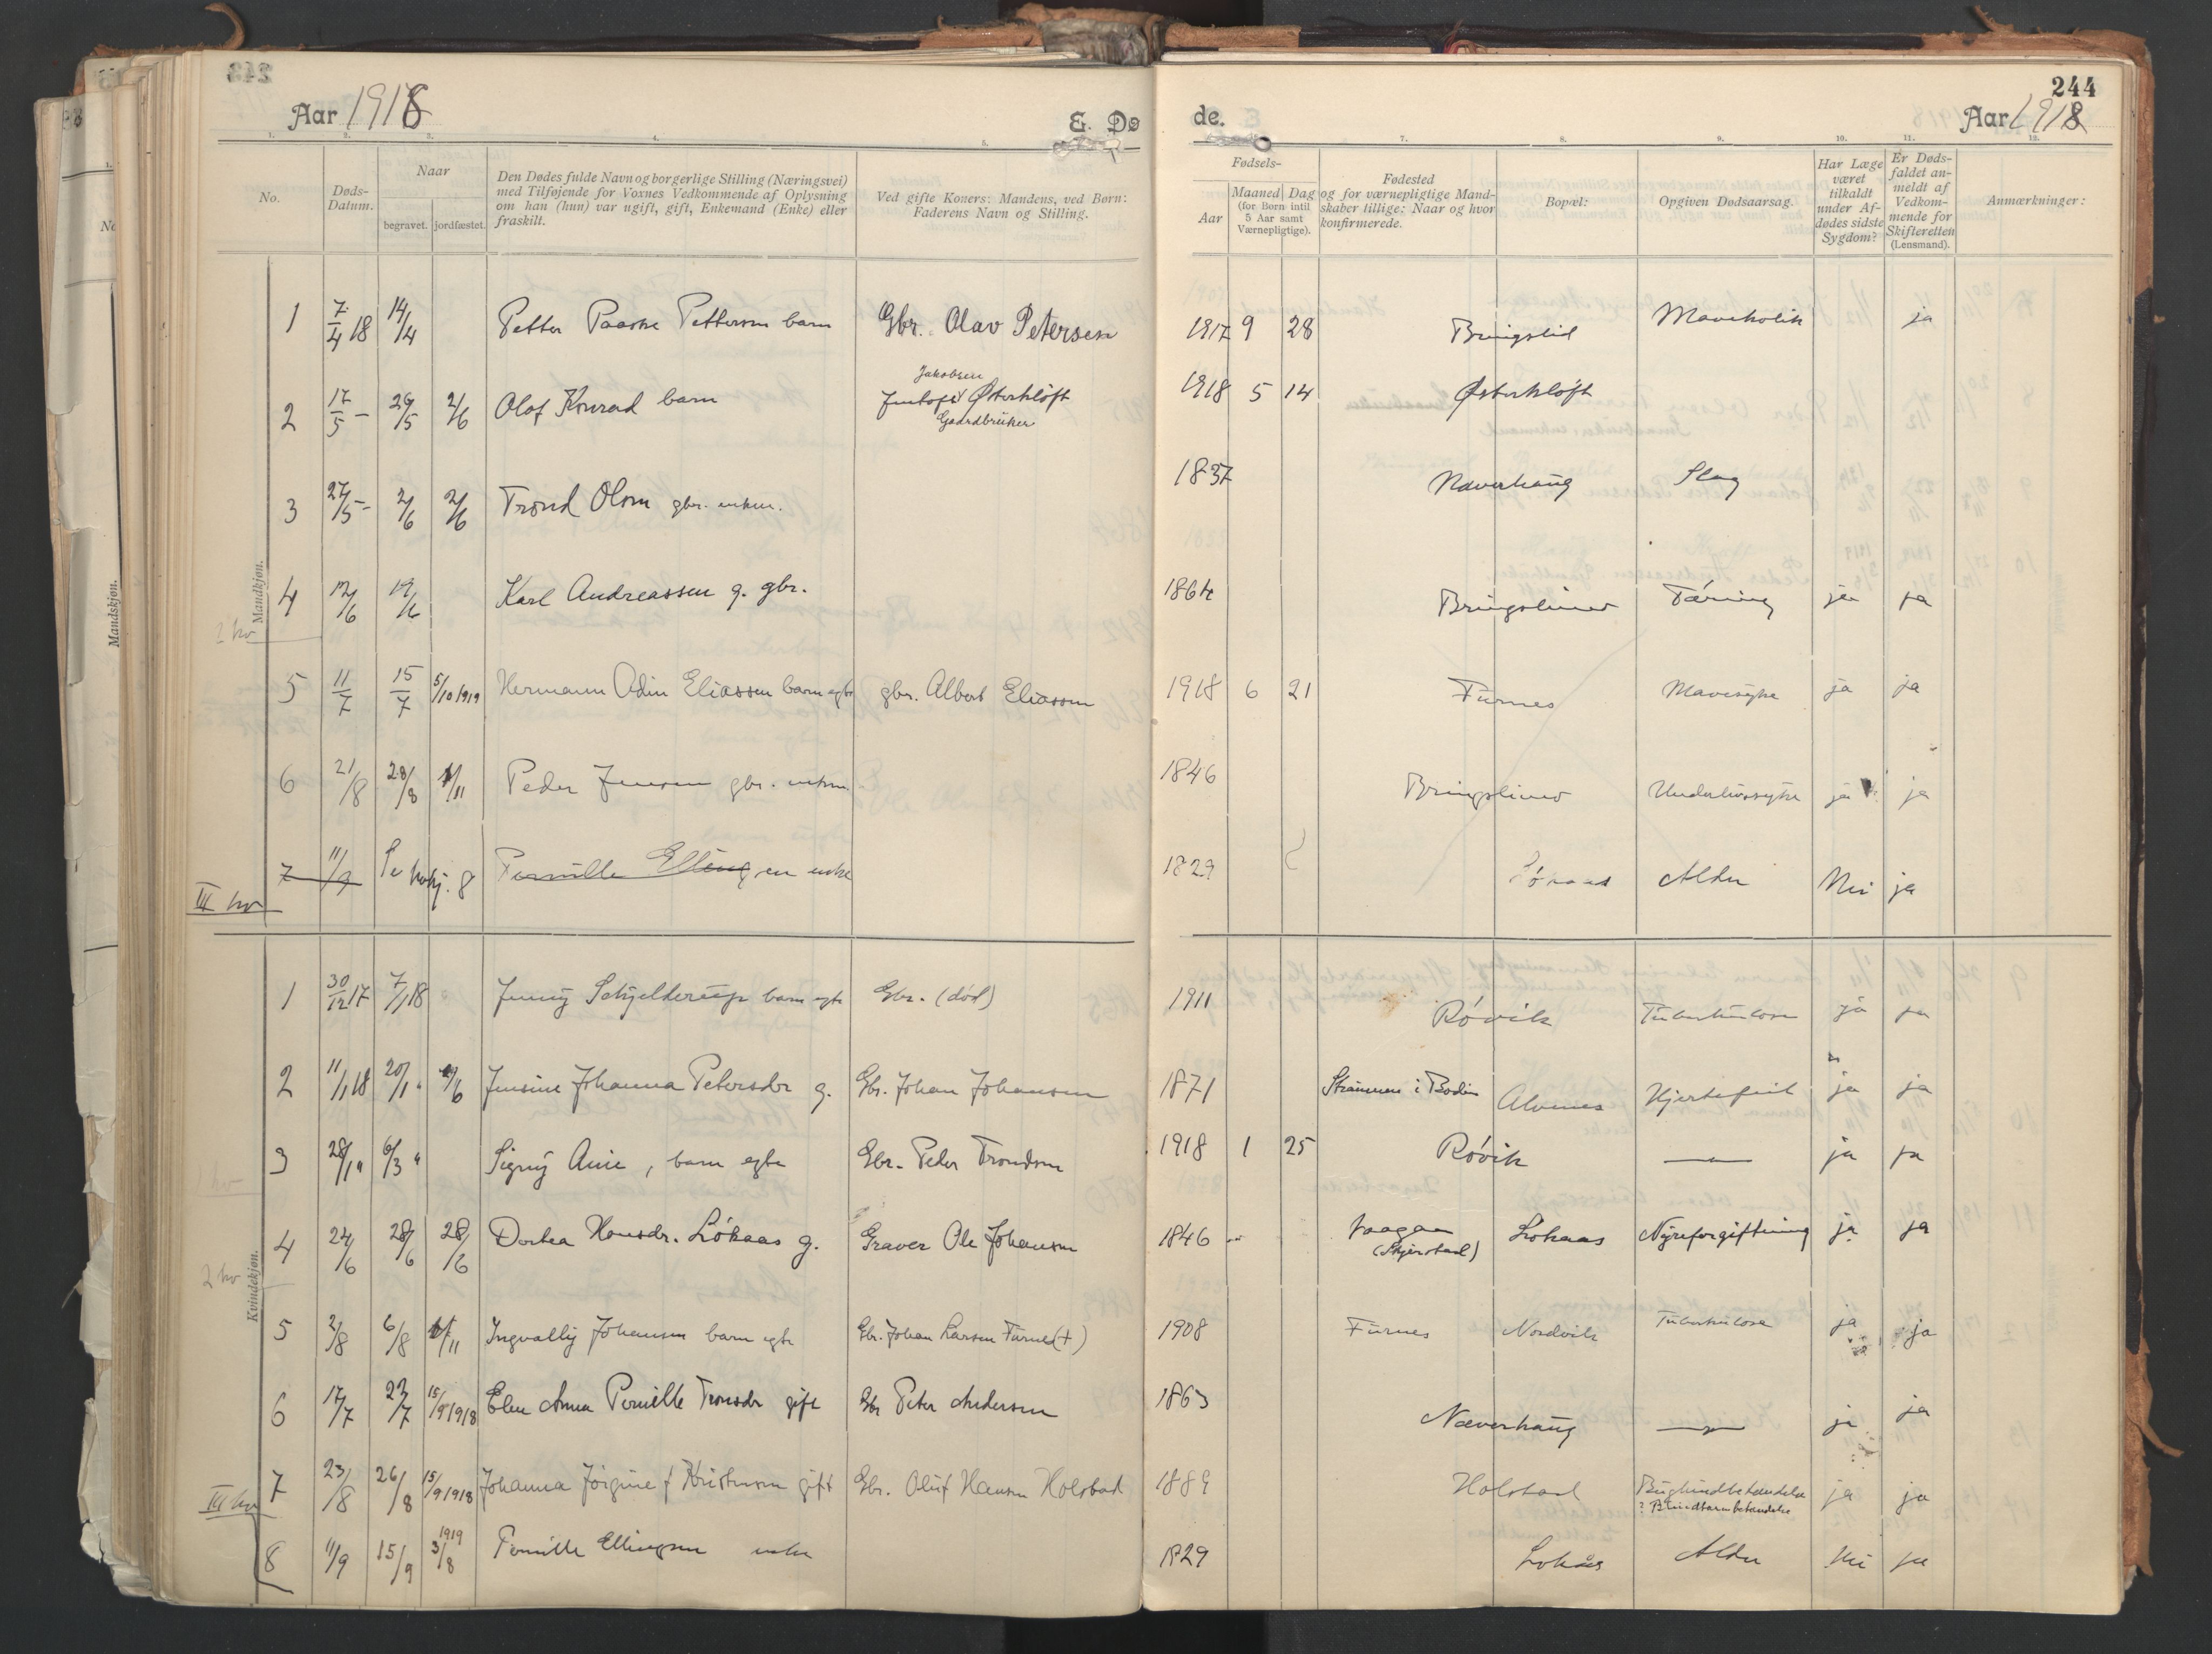 244
Aar 1918
E. Dø
de.
Aar 1918
1. 2. 3. 4. 5. 7. 8. 9. 10. 11. 12.
No.
Døds-
Datum.
Naar
begravet. jordfæstet.
Den Dødes fulde Navn og borgerlige Stilling (Næringsvei)
med Tilføjende for Voxnes Vedkommende af Oplysning
om han (hun) var ugift, gift, Enkemand (Enke) eller
fraskilt.
Ved gifte Koners: Mandens, ved Børn:
Faderens Navn og Stilling.
Fødsels-
Aar
Maaned Dag
(for Børn intil
5 Aar samt
Værnepligtige).
Fødested
og for værnepligtige Mand-
skaber tillige: Naar og hvor
konfirmerede.
Bopæl:
Opgiven Dødsaarsag.
Har Læge
været
tilkaldt
under Af-
dødes sidste
Sygdom?
Er Døds-
faldet an-
meldt af
Vedkom-
mende for
Skifteretten
(Lensmand).
Anmærkninger:
Mandkjøn.
1 7/4 18 14/4 Petter Paaske Pettersen barn Gbr. Olav Petersen 1917 9 28 Bringslid Mavekolik ja
Jakobsen
2 17/5 – 26/5 2/6 Olaf Konrad barn Østerkløft 1918 5 14 Østerkløft
Gaardbruker
3 27/5 – 2/6 2/6 Trond Olsen gbr. enkem. 1837 Næverhaug Slag
4 12/6 19/6 Karl Andreassen g. gbr. 1864 Bringslimo Tæring ja ja
2 kv
5 11/7 15/7 5/10 1919 Hermann Odin Eliassen barn egte gbr. Albert Eliassen 1918 6 21 Furnes Mavesyke ja ja
6 21/8 28/8 1/11 Peder Jensen gbr. enkem. 1846 Bringslimo Underlivssyke ja ja
7 11/9 Se kvkj. 8 Pernille Ellingsen enke 1829 Løkaas Alder Nei ja
III kv
Kvindekjøn.
1 30/12 17 7/1 18 Jenny Schjelderup barn egte Gbr. (død) 1911 Røvik Tuberkulose ja ja
2 11/1 18 20/1 " 2/6 Jensine Johanna Petersdr g. Gbr. Johan Johansen 1871 Strømmen i Bodin Alvenes Hjertefeil ja ja
3 28/1 " 6/3 " Signy Anie, barn egte Gbr. Peder Trondsen 1918 1 25 Røvik — " — ja ja
1 kv
4 24/6 28/6 28/6 Dorthea Hansdr. Løkaas g. Graver Ole Johansen 1846 Vaagan Løkaas Nyreforgiftning ja ja
(Skjerstad)
2 kv
5 2/8 6/8 1/11 Ingvally Johansen barn egte Gbr. Johan Larsen Furnes (+) 1908 Furnes Nordvik Tuberkulose ja ja
6 17/7 22/7 15/9 1918 Elen Anna Pernille Tronsdr gift Gbr Peter Andersen 1863 Næverhaug — " — ja ja
7 23/8 26/8 15/9 1918 Johanna Jørgine f Kristensen gift Gbr. Oluf Hansen Holstad 1889 Holstad Bughindbetændelse ja ja
? Blindtarmbetændelse
III kv
8 11/9 15/9 1919 3/8 Pernille Ellingsen enke 1829 Løkås Alder Nei ja